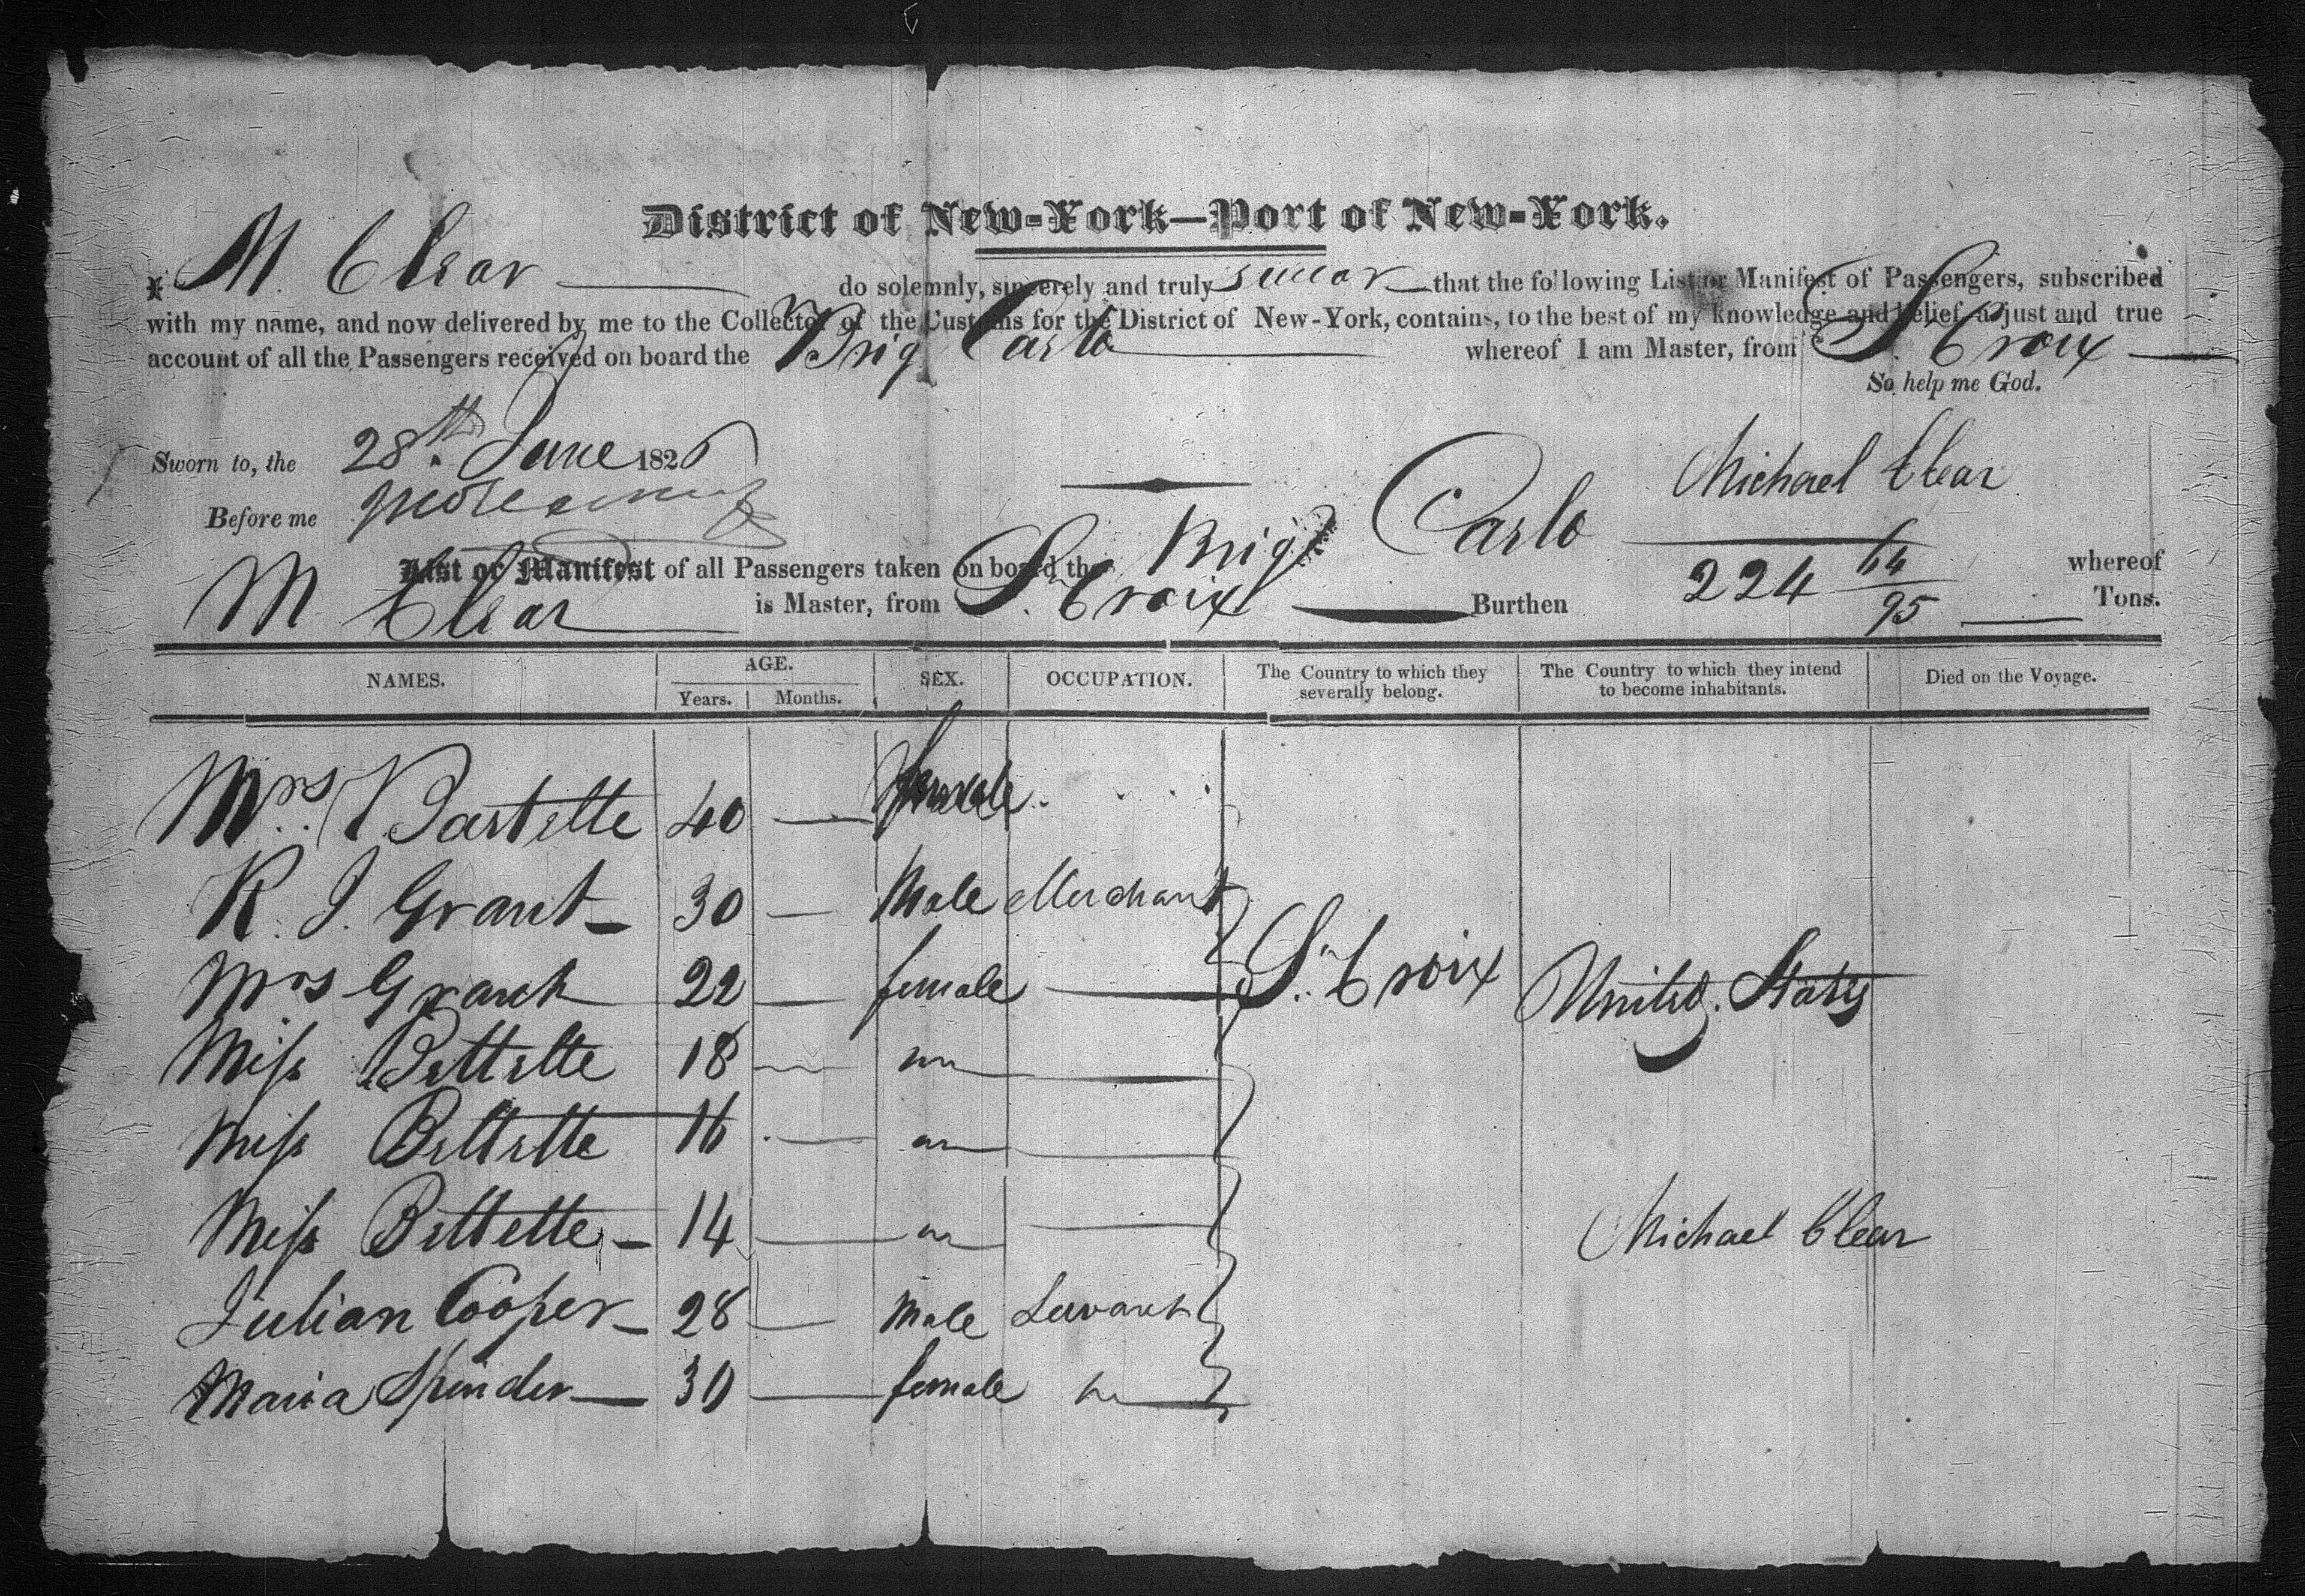 District of New-York—Port of New-York.
I M. Clear do solemnly, sincerely and truly swear that the following List or Manifest of Passengers, subscribed
with my name, and now delivered by me to the Collector of the Customs for the District of New-York, contains, to the best of my knowledge and belief, a just and true
account of all the Passengers received on board the Brig Carlo whereof I am Master, from St. Croix
So help me God.
Sworn to, the 28th. June 1826
Michael Clear
Before me
List or Manifest of all Passengers taken on board the Brig Carlo whereof
M Clear is Master, from St. Croix Burthen 224 64/95 Tons.
NAMES. AGE. Years. Months. SEX. OCCUPATION. The Country to which they severally belong. The Country to which they intend to become inhabitants. Died on the Voyage.
Mrs. Bartelte 40 — female
R. J. Grant 30 — Male Merchant
Mrs Grant 22 — female — St. Croix United States
Miss Bettelte 18 — " —
Miss Bettelte 16 — " —
Miss Bettelte 14 — " —
Michael Clear
Julian Cooper 28 — Male Servant
Maria Spinder 30 — female "